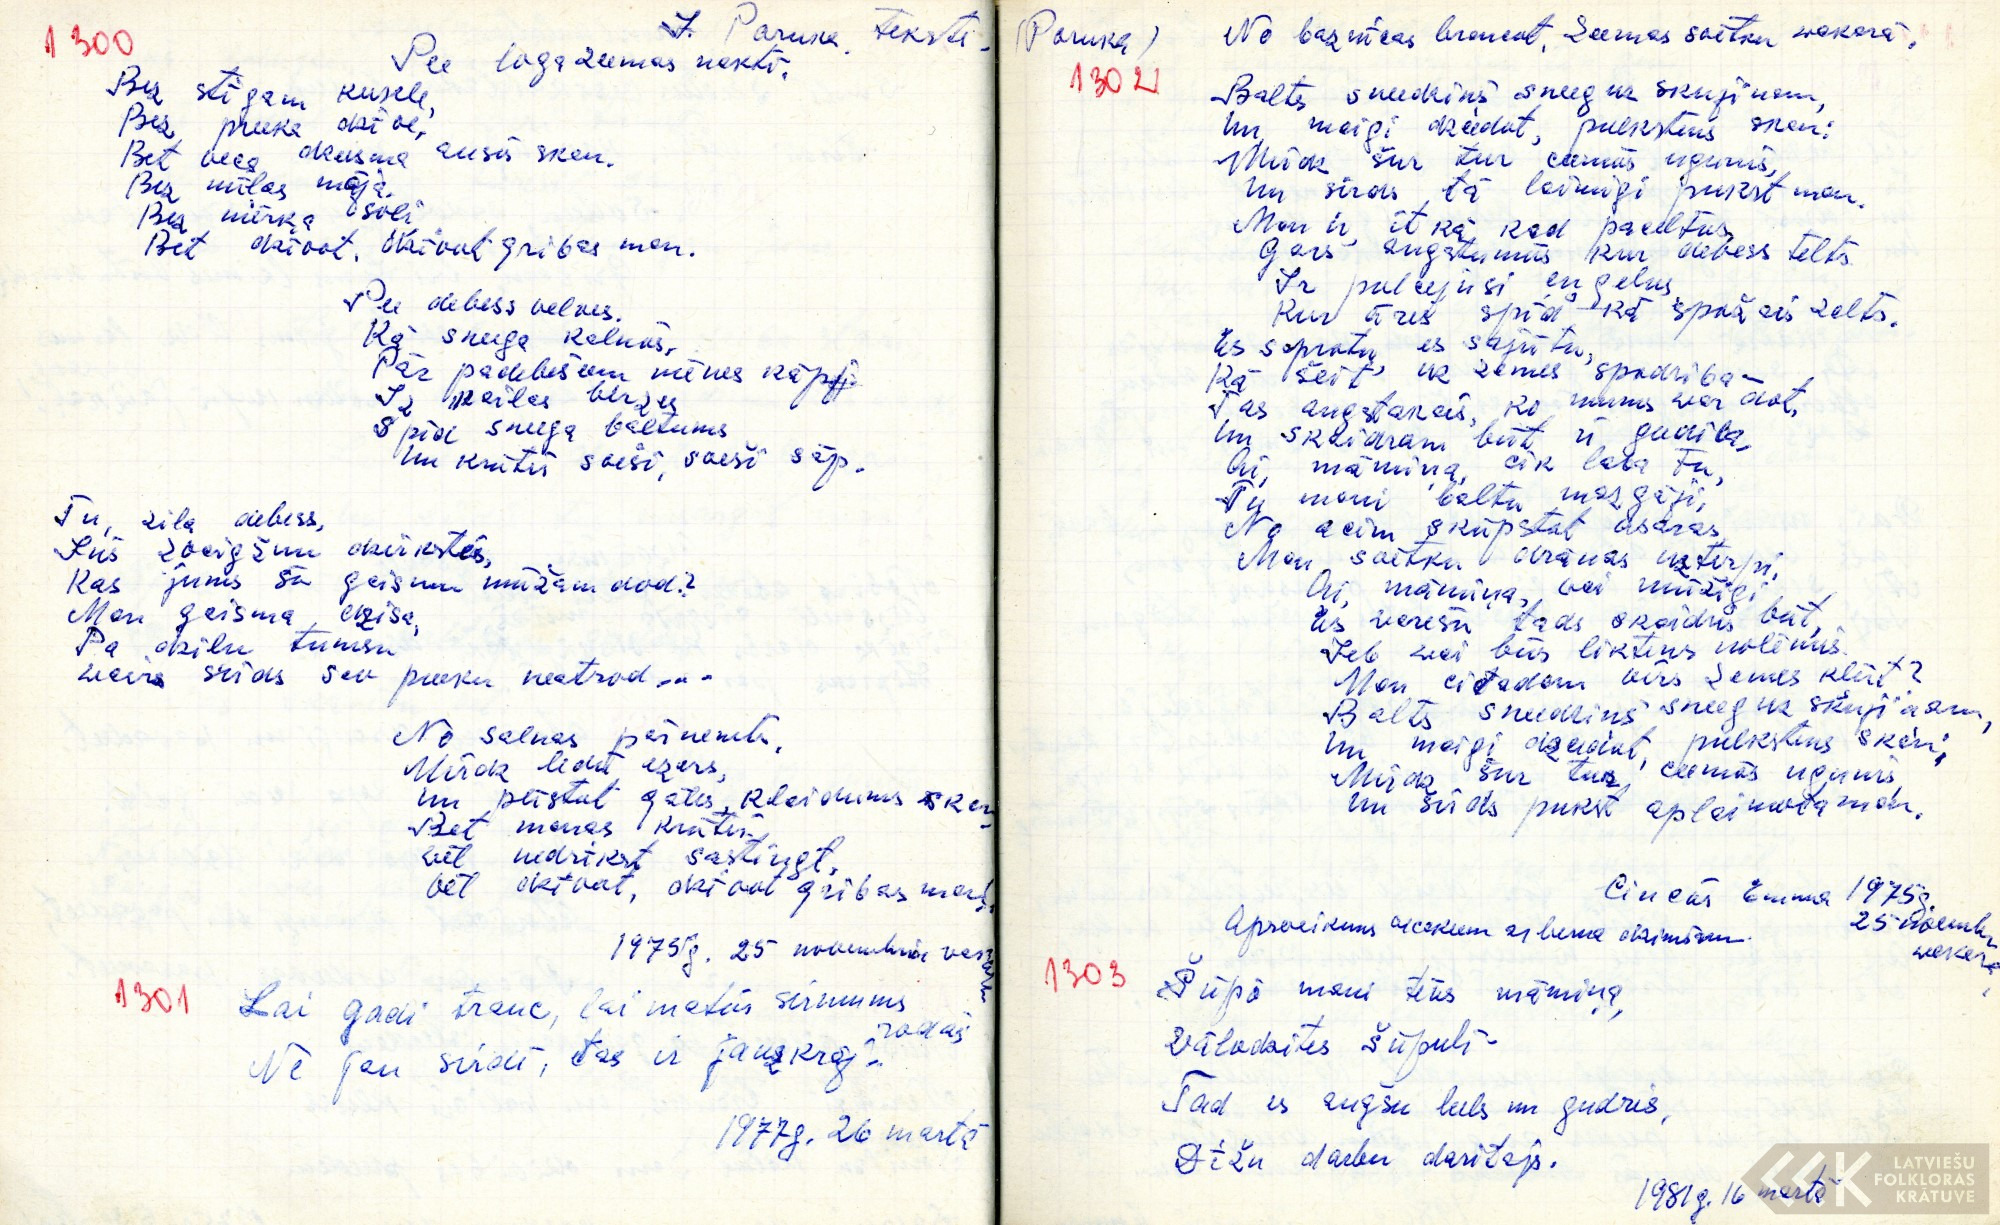 1300
J. Poruka teksti -
Pee loga zeemas naktī.
Bez stīgam kuokle,
Bez preeka dzīve,
Bet veca dzeesma ausīs skan.
Bez mīlas māja,
Bez mērķa soļi
Bet dzīvot, dzīvot gribas man.
Pee debess velves.
Kā sneega kalnos,
Pār padebešeem mēnes kāpj
Iz kailas bērzes
Spīd sneega baltums
Un krūtis sveši, sveši sāp.
Tu, zila debess,
Jūs zvaigžņu dzirkstes,
Kas jums šo gaismu mūžam dod?
Man gaisma dzisa,
Pa dziļu tumsu
vairs sirds sev preeku neatrod...
No salnas pārņemts,
Mirdz ledū ezers,
Un pūstot gaŗš klaidums skan,
Bet manas krūtis
vēl nedrīkst sastingt,
vēl dzīvot, dzīvot gribas man.
1975g. 25 novembris vakarā
1301
Lai gadi trauc, lai matūs sirmums rodas
Ne jau sirdī, tas ir jauzkrāj!-
1977g. 26 martā
(Poruka)
No baznīcas braucot, Zeemas svētku vakarā.
1302
Balts sneedziņš sneeg uz skujiņam,
Un maigi dzeedot, pulkstens skan;
Mirdz šur tur ceemūs uguņis,
Un sirds tā laimīgi pukst man.
Man ir, it kā kad paceltus
Gars augstumūs kur debess telts
Ir pulcejusi eņgeļus
Kur ārēs spīd kā spožais zelts.
Es saprotu, es sajūtu,
Kā šeit uz zemes spodrība
Tas augstakais, ko mums var dot,
Un skaidram būt ir gudrība,
Ai, māmiņa, cik laba Tu,
Tu mani baltu mazgāji,
No acim skūpstot asaras,
Man svētku drānas uzterpi,
Ai, māmiņa, vai mūžigi
Es varešu tāds skaidris būt,
Jeb vai būs liktens nolēmis
Man citadam virs zemes kļūt?
Balts sneedziņš sneeg uz skujiņam,
Un maigi dzeedot, pulkstens skan;
Mirdz šur tur, ceemūs uguņis
Un sirds pukst aplaimota man.
Cincās Emma 1975g.
25 novembr. vakarā,
Apsveikums vecakeem ar berna dzimšanu.
1303
Šūpo mani tēvs māmiņa,
Vālodzītes šūpulī -
Tad es augšu leels un gudris,
Dižu darbu darītājs.
1981g. 16 martā
LATVIEŠU
FOLKLORAS
KRĀTUVE